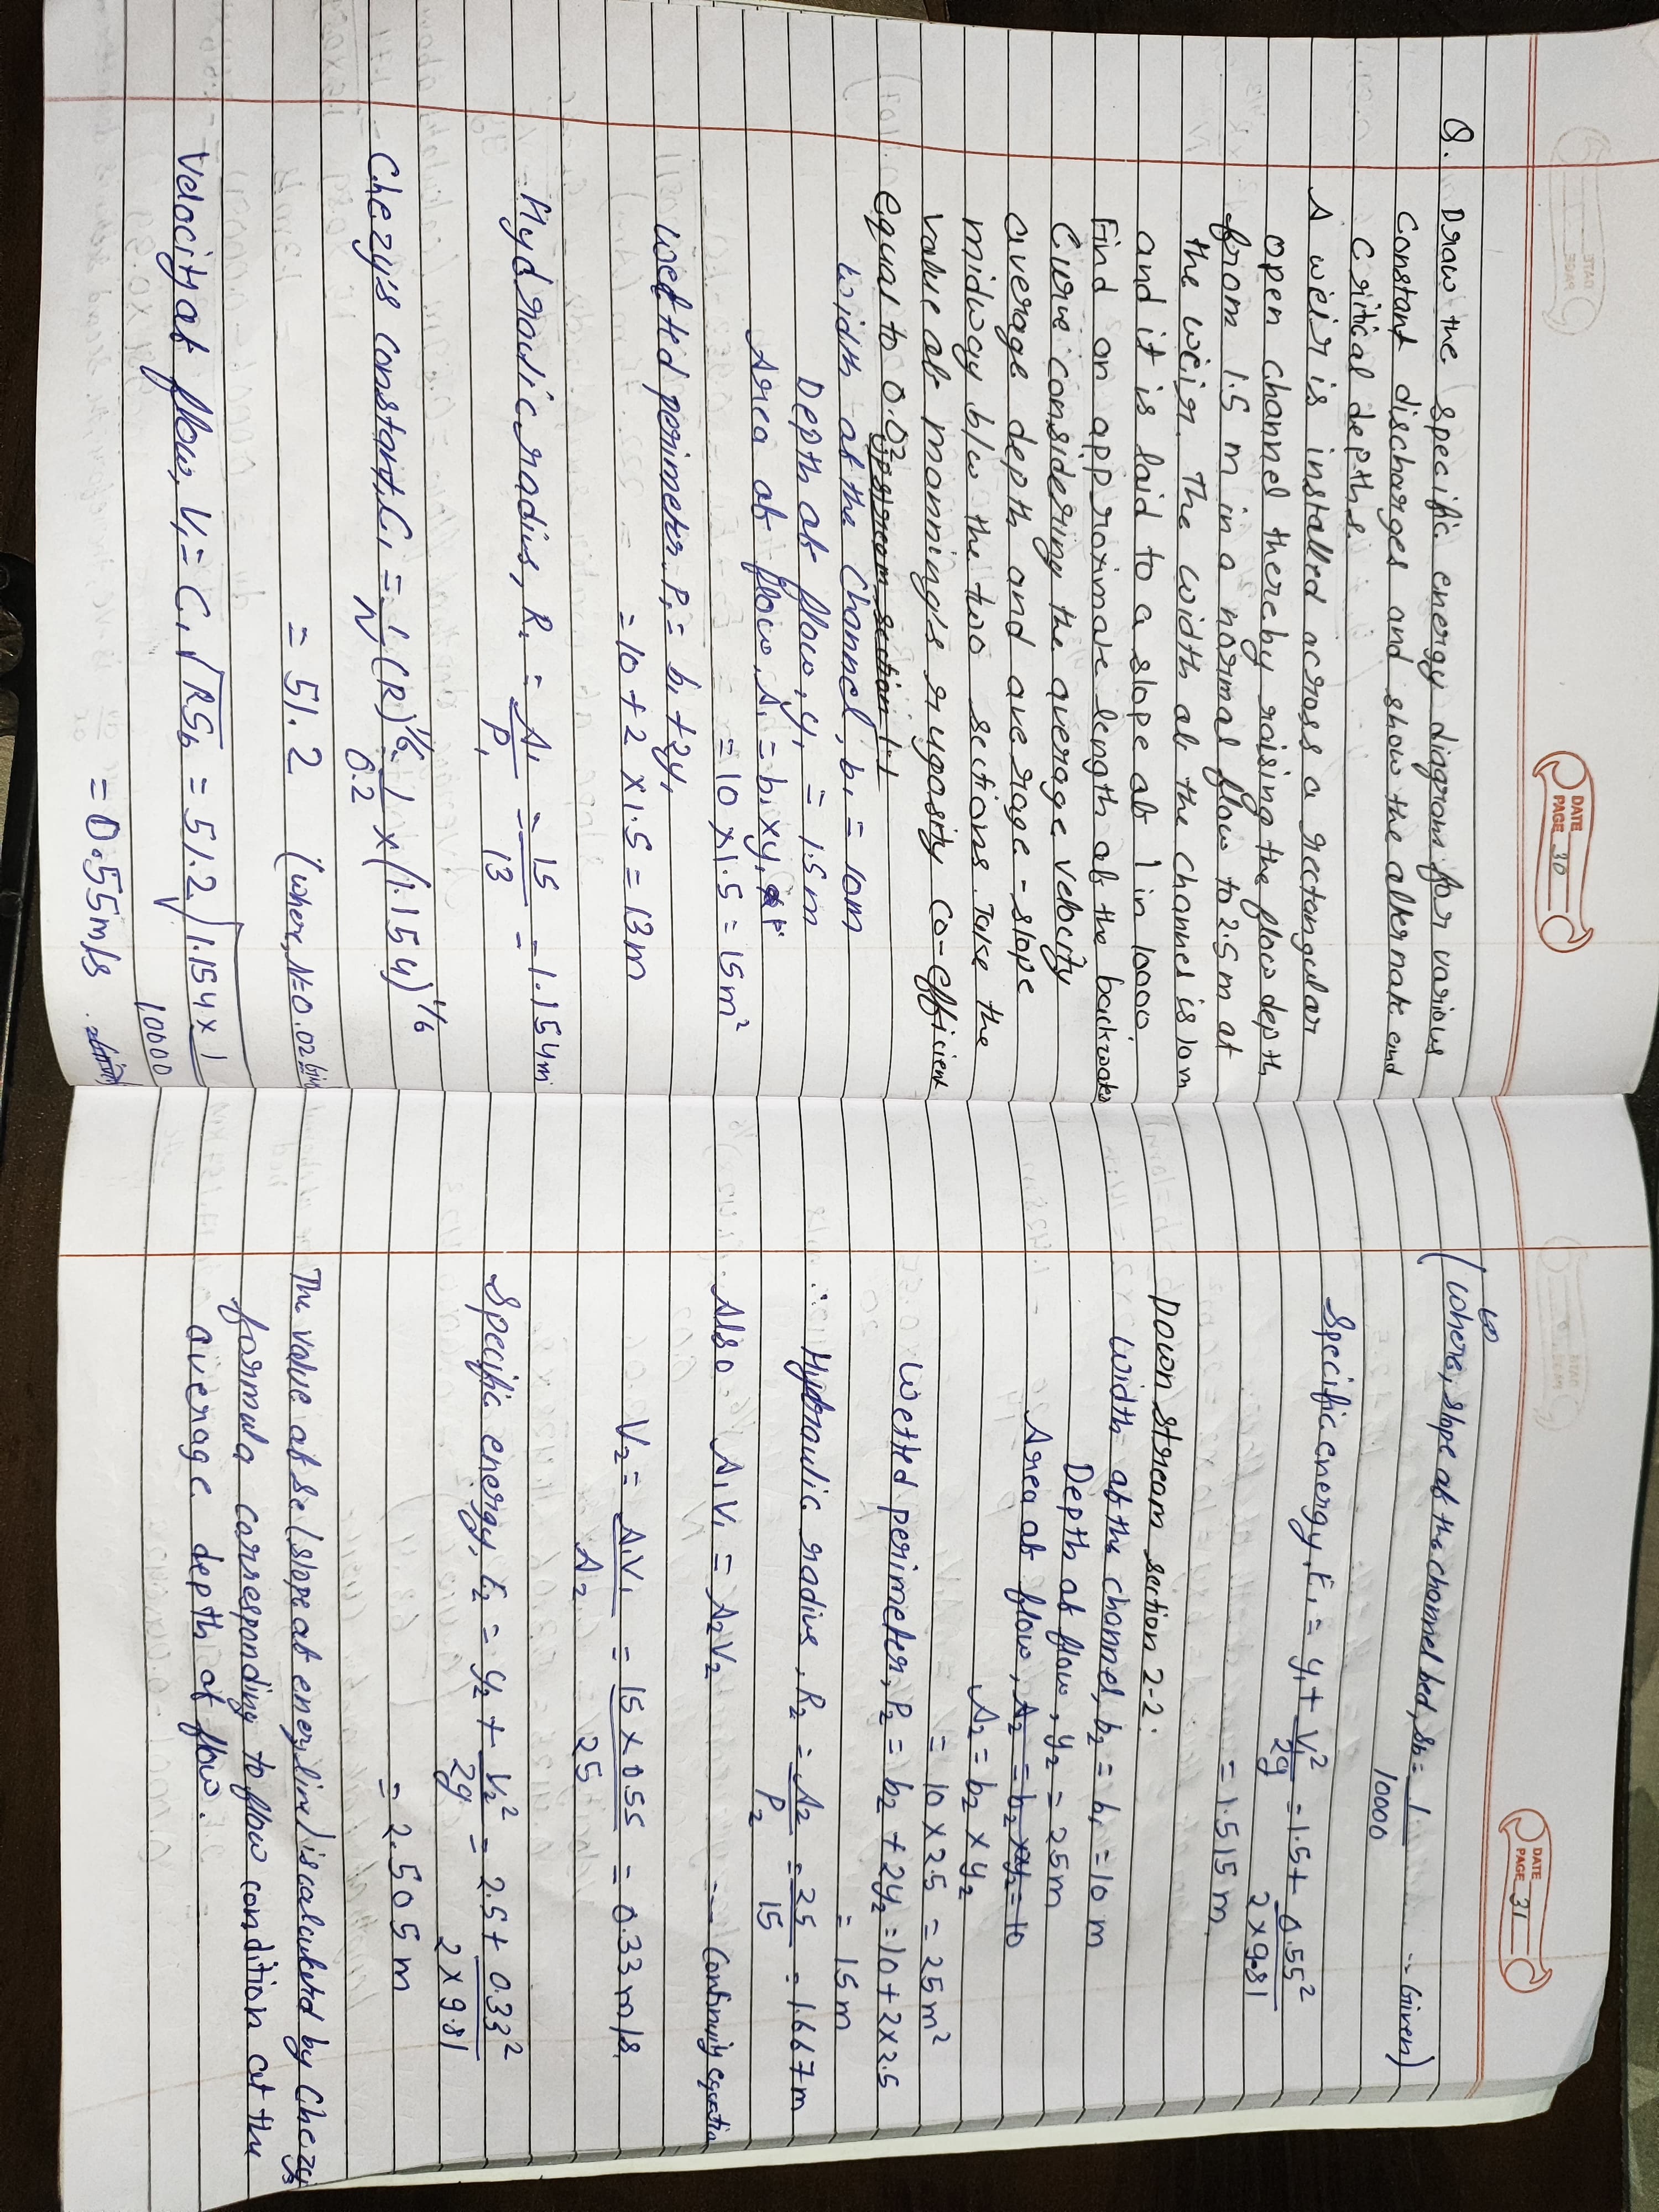 DATE
PAGE 30
Q. Draw the specific energy diagram for various
constant discharges and show the alternate and
critical depths.
A weir is installed across a rectangular
open channel thereby raising the flow depth
from 1.5 m in a normal flow to 2.5 m at
the weir. The width of the channel is 10m
and it is laid to a slope of 1 in 10000.
Find an approximate length of the backwater
Curve considering the average velocity
average depth and average - slope
midway b/w the two sections. Take the
value of manning's rugosity co-efficient
equal to 0.02 upstream section 1-1
width of the channel, b₁ = 10m
Depth of flow, y₁ = 1.5m
Area of flow, A₁ = b₁ x y₁
= 10 x 1.5 = 15m²
wetted perimeter P₁ = b₁ + 2y₁
= 10 + 2 x 1.5 = 13m
Hydraulic radius, R₁ = A₁/P₁ = 15/13 = 1.154m
Chezy's constant, C₁ = 1/N (R)^1/6 = 1/0.2 x (1.154)^1/6
= 51.2 (where, N=0.02
Velocity of flow, V₁ = C₁ √RSb = 51.2 √1.154 x 1/10000
= 0.55m/s.
DATE
PAGE 31
(where, slope of the channel bed, Sb = 1/10000 -- Given)
Specific energy, E₁ = y₁ + V₁²/2g = 1.5 + 0.55²/2 x 9.81
= 1.515 m
Down stream section 2-2:
Width of the channel, b₂ = b₁ = 10 m
Depth of flow, y₂ = 2.5m
Area of flow, A₂ = b₂ x y₂ = 10
A₂ = b₂ x y₂
= 10 x 2.5 = 25m²
Wetted perimeter, P₂ = b₂ + 2y₂ = 10 + 2 x 2.5
= 15m
∴ Hydraulic radius, R₂ = A₂/P₂ = 25/15 = 1.667m
Also A₁V₁ = A₂V₂ --- Continuity equation
V₂ = A₁V₁/A₂ = 15 x 0.55/25 = 0.33 m/s.
Specific energy, E₂ = y₂ + V₂²/2g = 2.5 + 0.33²/2 x 9.81
= 2.505 m
The value of Se (slope of energy line) is calculated by Chezy's
formula corresponding to flow condition at the
average depth of flow.